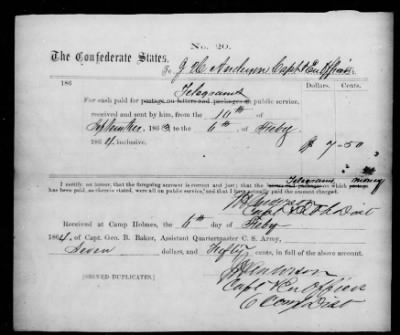 No. 20.
The Confederate States.
To J H Anderson Capt & En Officer
186
Dollars. Cents.
Telegrams
For each paid for postage on letters and packages on public service,
received and sent by him, from the 16th of
September, 1863, to the 6th of Feby
1864, inclusive.
$ 7-50
Telegrams, money
I certify on honor, that the foregoing account is correct and just; that the which
has been paid, as therein stated, were all on public service, and that I have actually paid the amount charged.
Anderson
Capt & En Dist
Received at Camp Holmes, the 6th day of Feby
1864, of Capt. Geo. B. Baker, Assistant Quartermaster C. S. Army,
Seven dollars, and Fifty cents, in full of the above account.
[SIGNED DUPLICATES.]
Anderson
Capt & En Officer
Dist